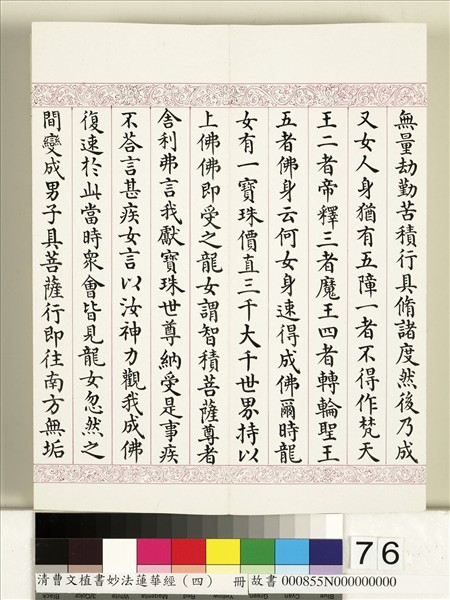 無量劫勤苦積行具脩諸度然後乃成
又女人身猶有五障一者不得作梵天
王二者帝釋三者魔王四者轉輪聖王
五者佛身云何女身速得成佛爾時龍
女有一寶珠價直三千大千世界持以
上佛佛即受之龍女謂智積菩薩尊者
舍利弗言我獻寶珠世尊納受是事疾
不荅言甚疾女言以汝神力觀我成佛
復速於此當時眾會皆見龍女忽然之
間變成男子具菩薩行即往南方無垢
76
清曹文植書妙法蓮華經(四) 冊 故書 000855N000000000